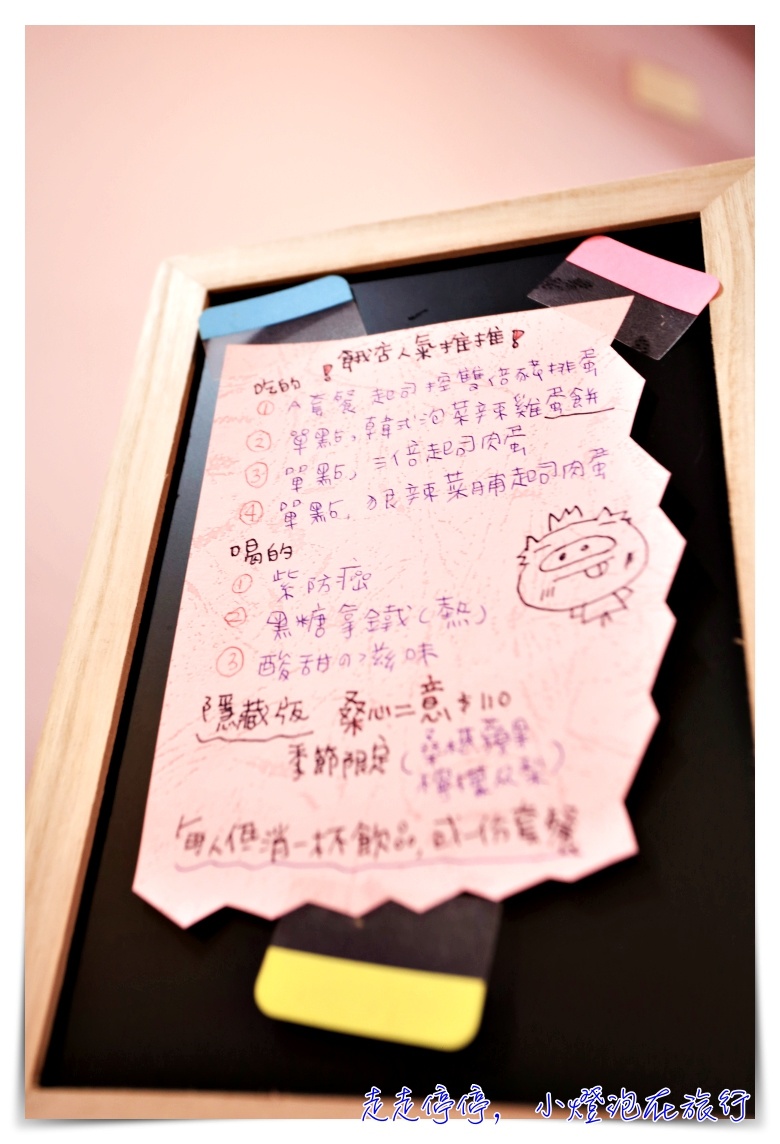 ！餓店人氣推推！
吃的
① A套餐 起司控雙倍豬排蛋
② 單點, 韓式泡菜辣雞蛋餅
③ 單點, 三倍起司肉蛋
④ 單點, 狠辣菜脯起司肉蛋
喝的
① 紫防癌
② 黑糖拿鐵(熱)
③ 酸甜の滋味
隱藏版 桑心二意$110
季節限定(桑椹蘋果
檸檬)
每人低消一杯飲品,或一份套餐
走走停停，小燈泡在旅行